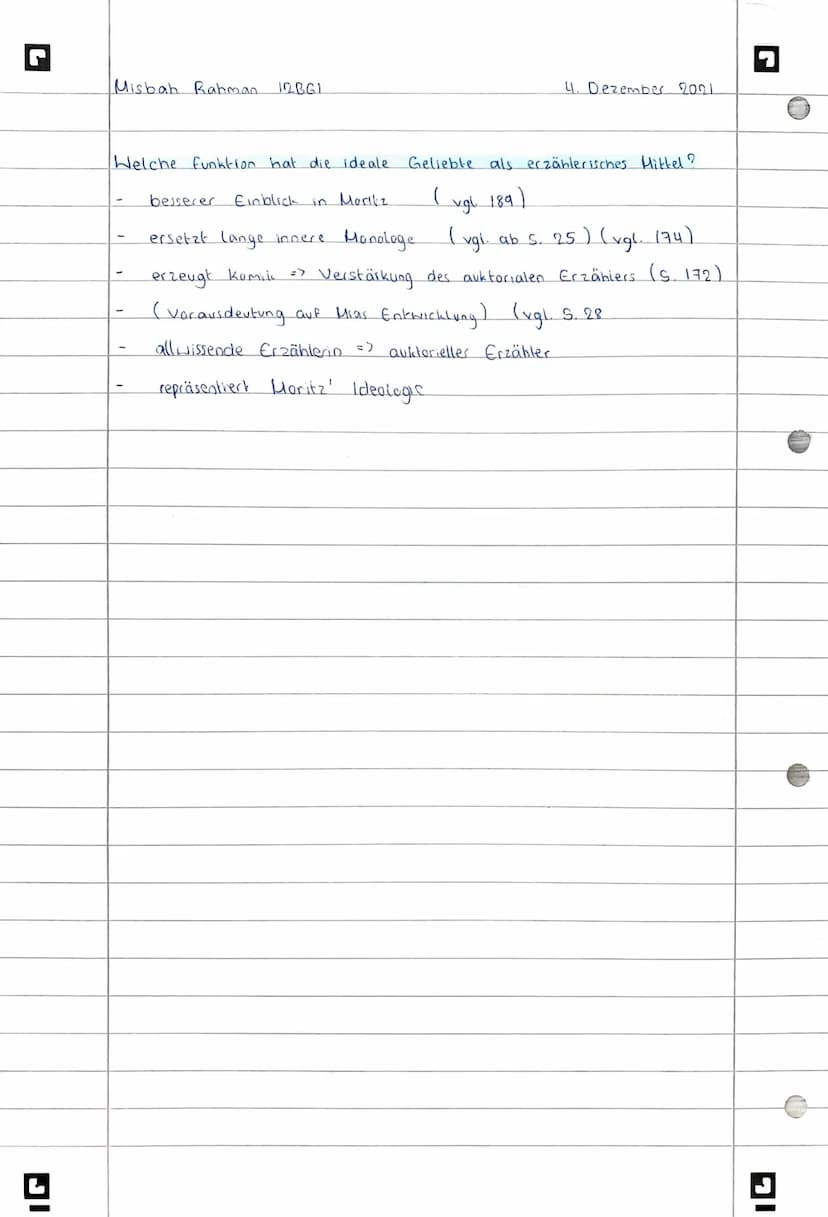 Misbah Rahman 12BG1 4. Dezember 2021
Welche Funktion hat die ideale Geliebte als erzählerisches Mittel?
- besserer Einblick in Moritz (vgl 189)
- ersetzt lange innere Monologe (vgl. ab S. 25) (vgl. 174)
- erzeugt Komik => Verstärkung des auktorialen Erzählers (S. 172)
- (Vorausdeutung auf Mias Entwicklung) (vgl. S. 28
- allwissende Erzählerin => auktorieller Erzähler
- repräsentiert Moritz' Ideologie